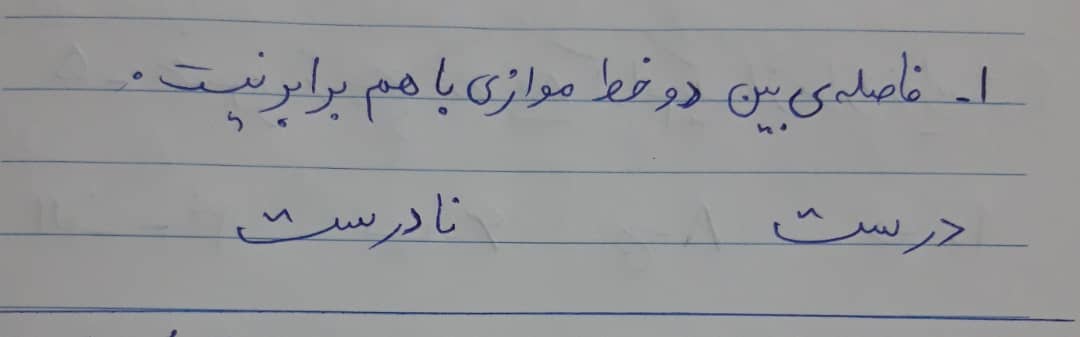 ۱- فاصله‌ی بین دو خط موازی با هم برابر نیست.
درست نادرست